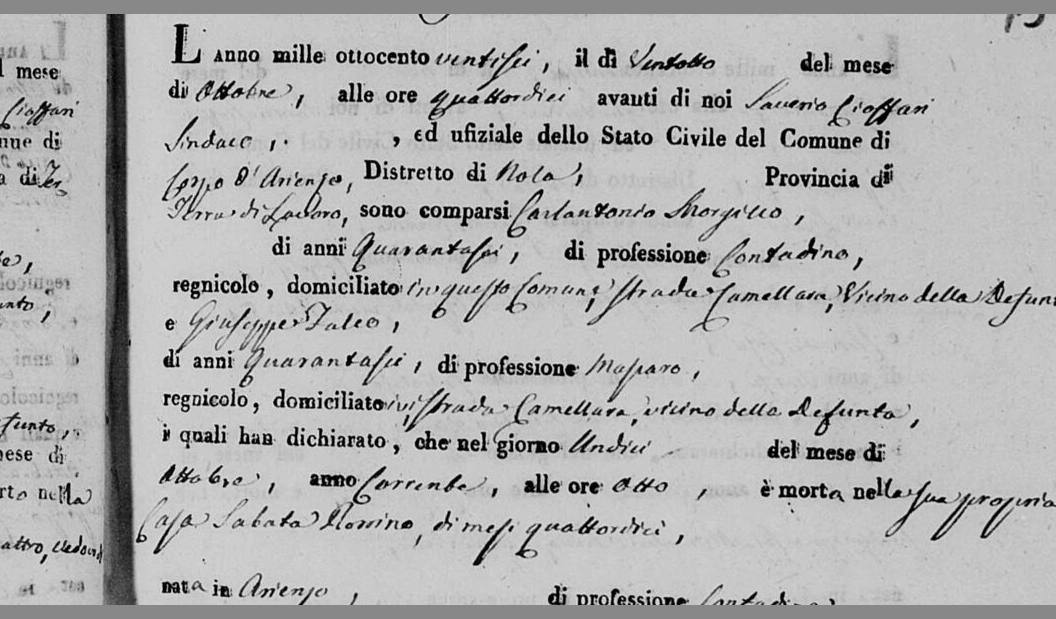 L'Anno mille ottocento ventisei, il dì Ventotto del mese
di Ottobre, alle ore quattordici avanti di noi Saverio Cioffari
Sindaco, , ed ufiziale dello Stato Civile del Comune di
Corpo d'Arienzo, Distretto di Nola, Provincia di
Terra di Lavoro, sono comparsi Carlantonio Morgillo,
di anni Quarantasei, di professione Contadino,
regnicolo, domiciliato in questo Comune, strada Camellara, Vicino della Defunta
e Giuseppe Falco,
di anni Quarantasei, di professione
regnicolo, domiciliato ivi strada Camellara, vicino della Defunta,
i quali han dichiarato, che nel giorno Undici del mese di
Ottobre, anno Corrente, alle ore Otto, è morta nella sua propria
Casa Sabata di mesi quattordici,
nata in Arienzo, di professione